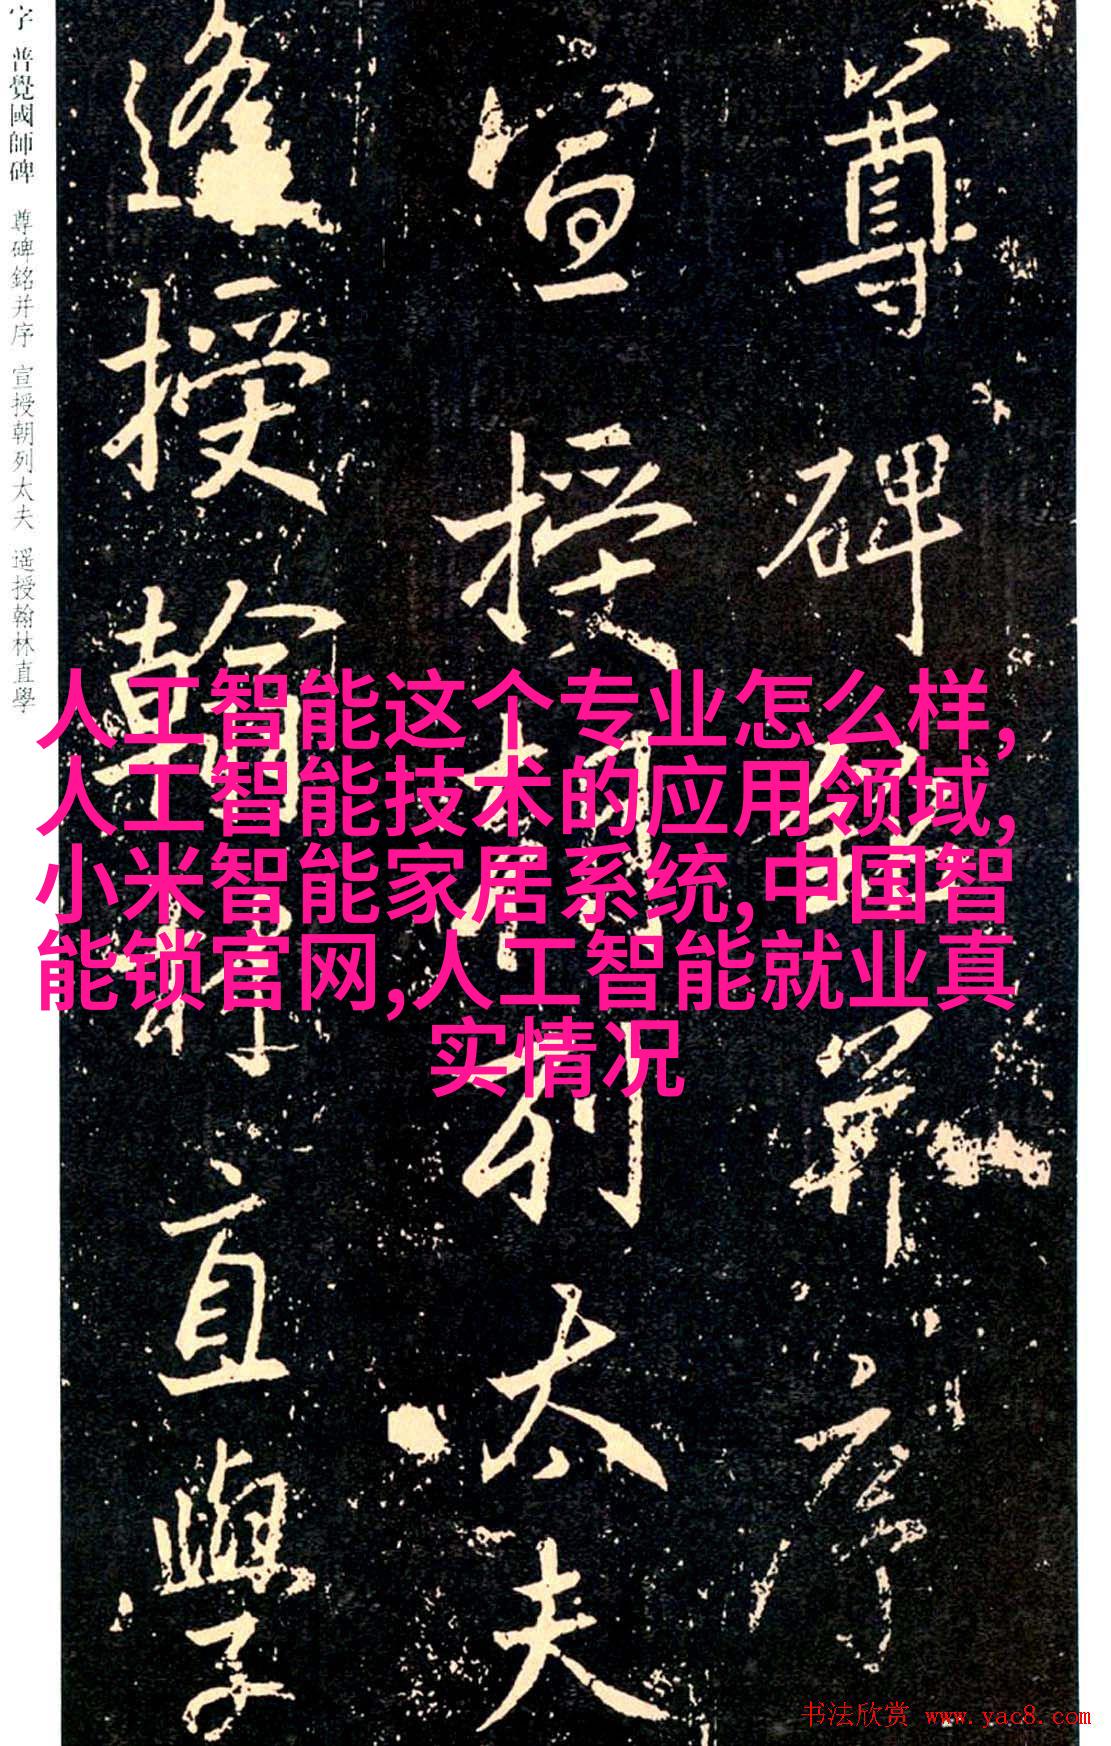 字 普覺國師碑 尊碑銘并序 宣授朝列太夫 遥授翰林直學
尊碑銘并序
宣授朝列太夫
遙授翰林直學
人工智能这个专业怎么样,
人工智能技术的应用领域,
小米智能家居系统,中国智
能锁官网,人工智能就业真
实情况
书法欣赏 www.yac8.com